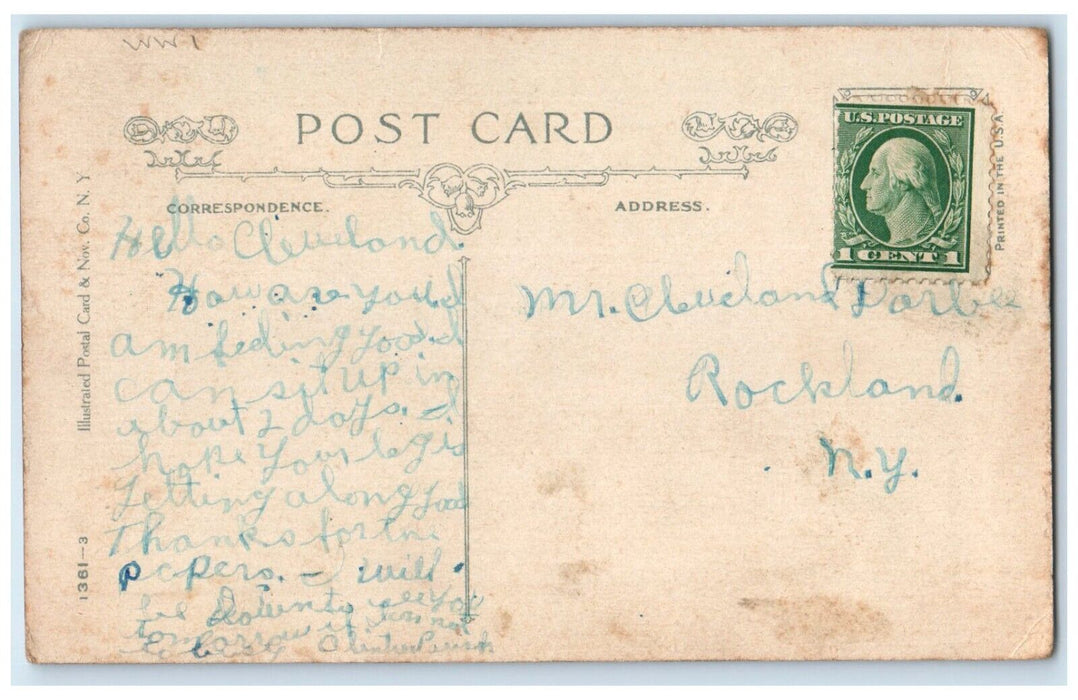 WW1
POST CARD
U.S. POSTAGE
1 CENT 1
PRINTED IN THE U.S.A.
CORRESPONDENCE.
ADDRESS.
Illustrated Postal Card & Nov. Co. N. Y.
1361—3
Hello Cleveland.
How are you. I
am feeling good. I
can sit up in
about 2 days. I
hope your leg is
getting along good
Thanks for the
papers. I will
be down to see you
tomorrow if am not
Mr. Cleveland
Rockland.
N.Y.